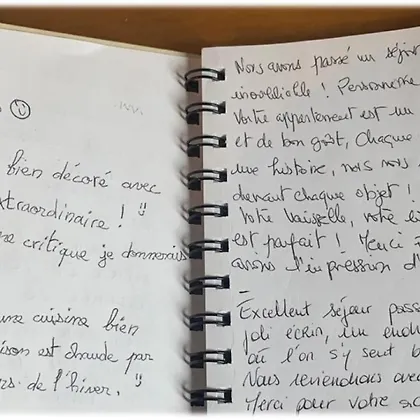 bien décoré avec
extraordinaire !
critique je donnerais
une cuisine bien
est chaude par
de l'hiver.
Nous avons passé un séjour
incroyable !
Votre appartement est un
et de bon goût, Chaque
une histoire, nous nous
chaque objet !
Votre vaisselle, votre
est parfait ! Merci
avions l'impression d'
Excellent séjour passé
joli écrin, un
où l'on s'y sent b
Nous reviendrons avec
Merci pour votre